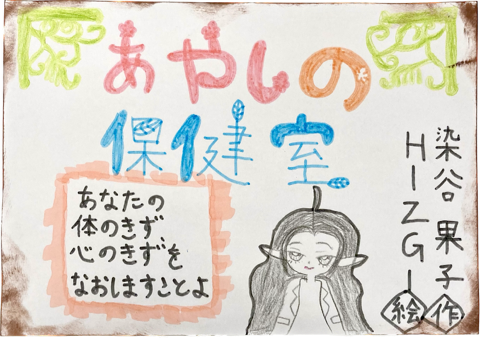 あやしの
保健室
あなたの
体のきず、
心のきずを
なおしますことよ
染谷果子 作
HIZGI 絵